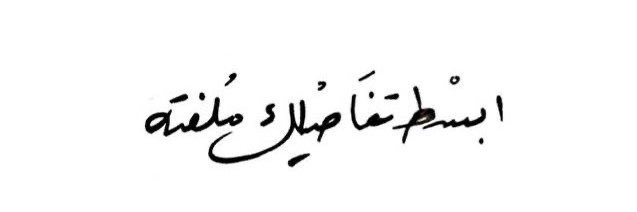 ابسْط تفَاصُيلك مُلفته